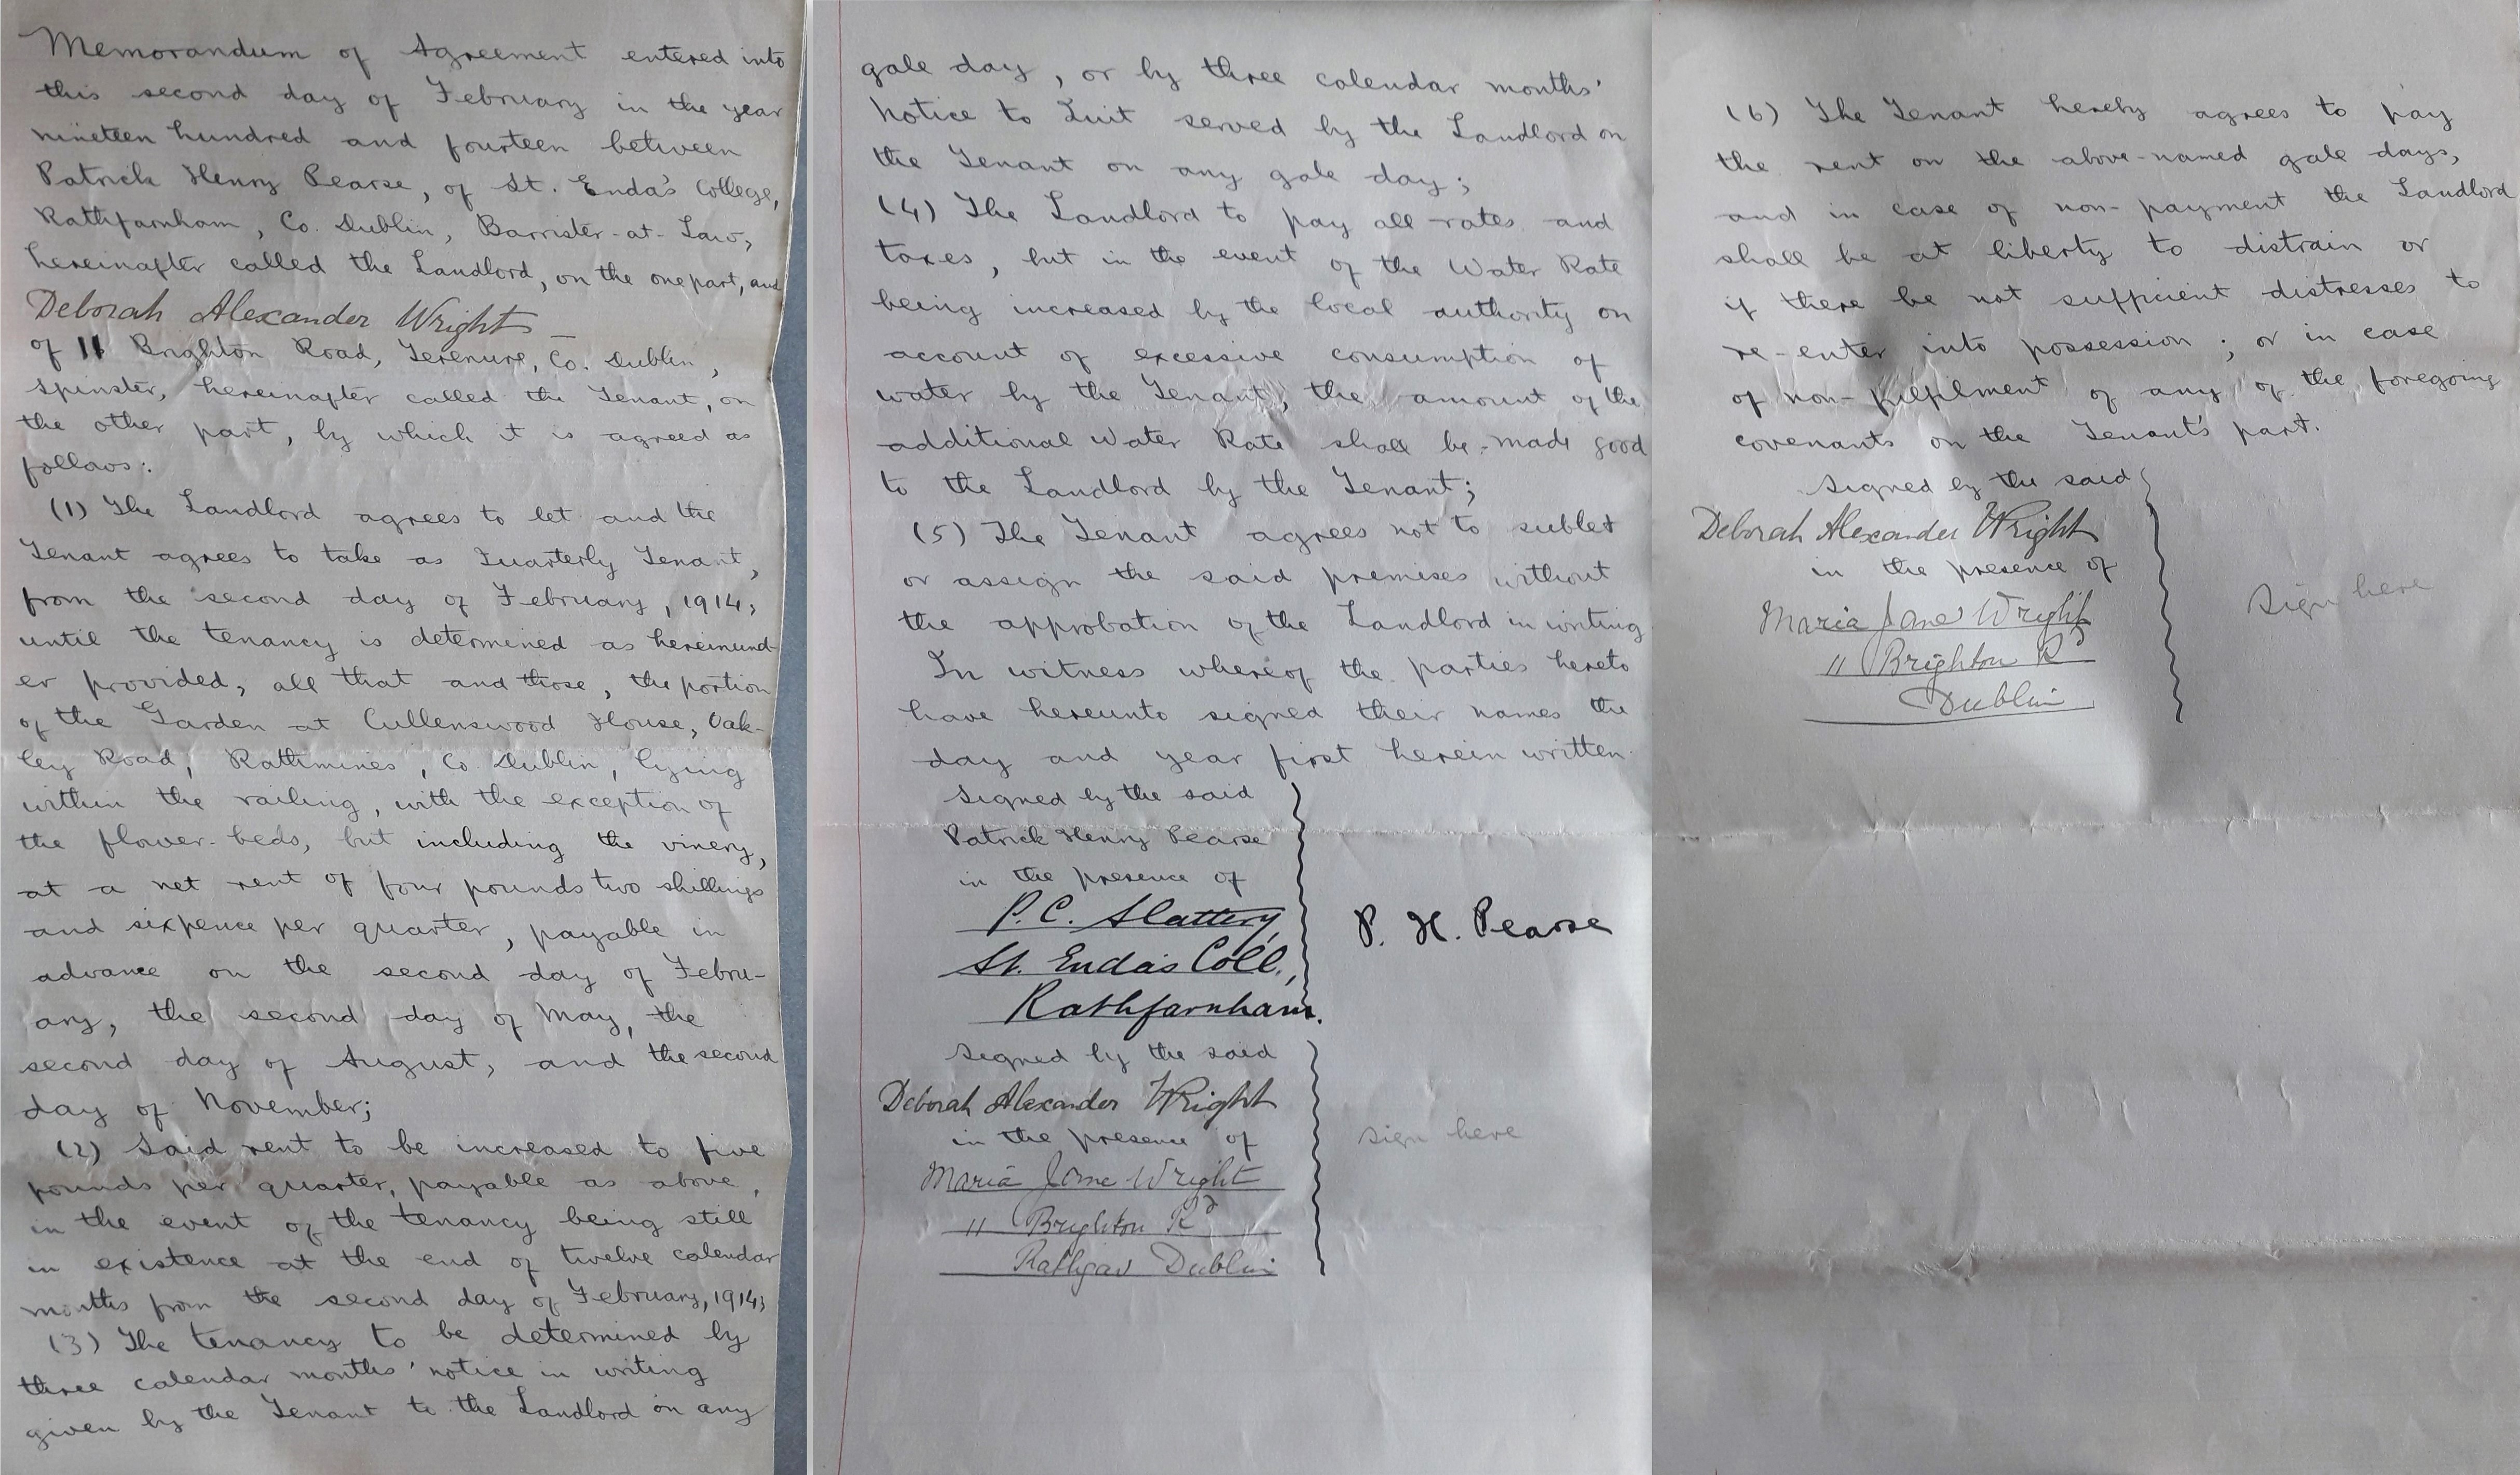 Memorandum of Agreement entered into
this second day of February in the year
nineteen hundred and fourteen between
Patrick Henry Pearse, of St. Enda's College,
Rathfarnham, Co. Dublin, Barrister-at-Law,
hereinafter called the Landlord, on the one part, and
Deborah Alexander Wright
of 11 Brighton Road, Terenure, Co. Dublin,
spinster, hereinafter called the Tenant, on
the other part, by which it is agreed as
follows:
(1) The Landlord agrees to let and the
Tenant agrees to take as Quarterly Tenant,
from the second day of February, 1914,
until the tenancy is determined as hereinund-
er provided, all that and those, the portion
of the Garden at Cullenswood House, Oak-
ley Road, Rathmines, Co. Dublin, lying
within the railing, with the exception of
the flower-beds, but including the vinery,
at a net rent of four pounds two shillings
and sixpence per quarter, payable in
advance on the second day of Febru-
ary, the second day of May, the
second day of August, and the second
day of November;
(2) Said rent to be increased to five
pounds per quarter, payable as above,
in the event of the tenancy being still
in existence at the end of twelve calendar
months from the second day of February, 1914;
(3) The tenancy to be determined by
three calendar months' notice in writing
given by the Tenant to the Landlord on any
gale day, or by three calendar months'
Notice to Quit served by the Landlord on
the Tenant on any gale day;
(4) The Landlord to pay all rates and
taxes, but in the event of the Water Rate
being increased by the local authority on
account of excessive consumption of
water by the Tenant, the amount of the
additional Water Rate shall be made good
to the Landlord by the Tenant;
(5) The Tenant agrees not to sublet
or assign the said premises without
the approbation of the Landlord in writing
In witness whereof the parties hereto
have hereunto signed their names the
day and year first herein written.
Signed by the said
Patrick Henry Pearse
in the presence of
P. C. Slattery,
St. Enda's Coll.,
Rathfarnham.
P. H. Pearse
Signed by the said
Deborah Alexander Wright
in the presence of
Maria Jane Wright
11 Brighton Rd
Rathgar Dublin
Sign here
(6) The Tenant hereby agrees to pay
the rent on the above-named gale days,
and in case of non-payment the Landlord
shall be at liberty to distrain or
if there be not sufficient distresses to
re-enter into possession; or in case
of non-fulfilment of any of the foregoing
covenants on the Tenant's part.
Signed by the said
Deborah Alexander Wright
in the presence of
Maria Jane Wright
11 Brighton Rd
Dublin
Sign here